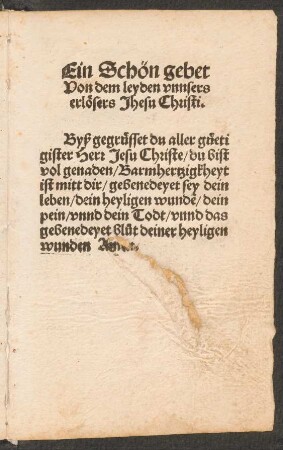 Ein Schön gebet
Von dem leyden vnnsers
erlösers Jhesu Christi.
Byß gegrüsset du aller güeti
gister Herr Jesu Christe/du bist
vol genaden/Barmhertzigkheyt
ist mitt dir/gebenedeyet sey dein
leben/dein heyligen wundē/dein
pein/vnnd dein Todt/vnnd das
gebenedeyet blůt deiner heyligen
wunden Amen.